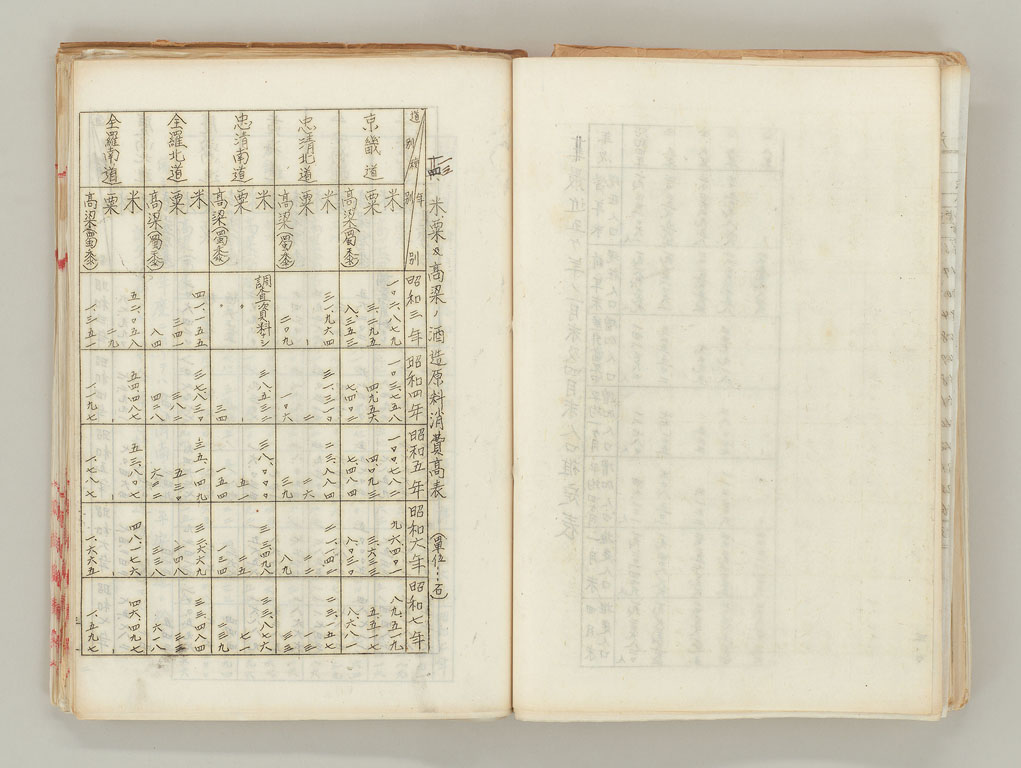 米粟及高粱ノ酒造原料消費高表 (單位:石)
道別 種別 年別 昭和三年 昭和四年 昭和五年 昭和六年 昭和七年
京畿道 米 一〇二、八七九 一〇三、七五八 一〇〇、七八二 九六、四〇一 八九、五一九
粟 三、二九五 四、九五六 四、〇九三 三、六三三 五、五一七
高粱(蜀黍) 八、三五三 七、四〇二 七、四八四 八、〇三〇 八、六八一
忠清北道 米 三一、三一〇 二三、八八四 二一、一四二 二三、一五七
粟 二 二六
高粱(蜀黍) 二〇九 一〇六 三九 八九 三三
忠清南道 米 調査資料ナシ 三八、五三二 三八、〇〇〇 三三、四九八 三三、八七六
粟 〃 五一 二五 七一
高粱(蜀黍) 〃 三四 一五四 一三四 二三九
全羅北道 米 四一、一五五 三七、八三〇 三五、一四九 三三、六六九 三三、四八四
粟 三四一 三八一 五三〇 二四八
高粱(蜀黍) 八四 四三八 六〇二 三三八 六一八
全羅南道 米 五二、〇五八 五四、四八七 五三、八〇七 四八、一七六 四六、四九七
粟 二九
高粱(蜀黍) 一、三五一 一、一九七 一、七八七 一、六六五 一、五九七